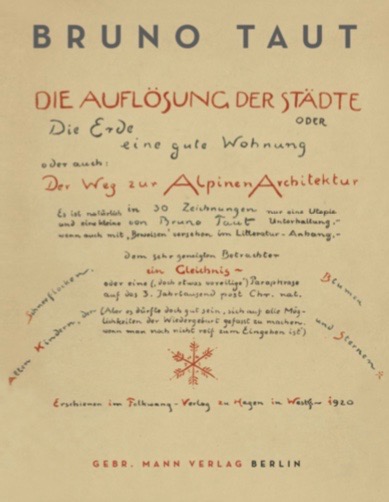 BRUNO TAUT
DIE AUFLÖSUNG DER STÄDTE
ODER
Die Erde
eine gute Wohnung
oder auch:
Der Weg zur Alpinen Architektur
Es ist natürlich in 30 Zeichnungen nur eine Utopie
und eine kleine von Bruno Taut Unterhaltung,-
wenn auch mit „Beweisen" versehen im Litteratur-Anhang,-
dem sehr geneigten Betrachter
ein Gleichnis ~
oder eine (, doch etwas voreilige') Paraphrase
auf das 3. Jahrtausend post Chr. nat.
(Aber es dürfte doch gut sein, sich auf alle Mög-
lichkeiten der Wiedergeburt gefasst zu machen,
wenn man noch nicht reif zum Eingehen ist)
Allen Kindern, den Schneeflocken,
Blumen und Sternen
Erschienen im Folkwang-Verlag zu Hagen in Westf. 1920
GEBR. MANN VERLAG BERLIN